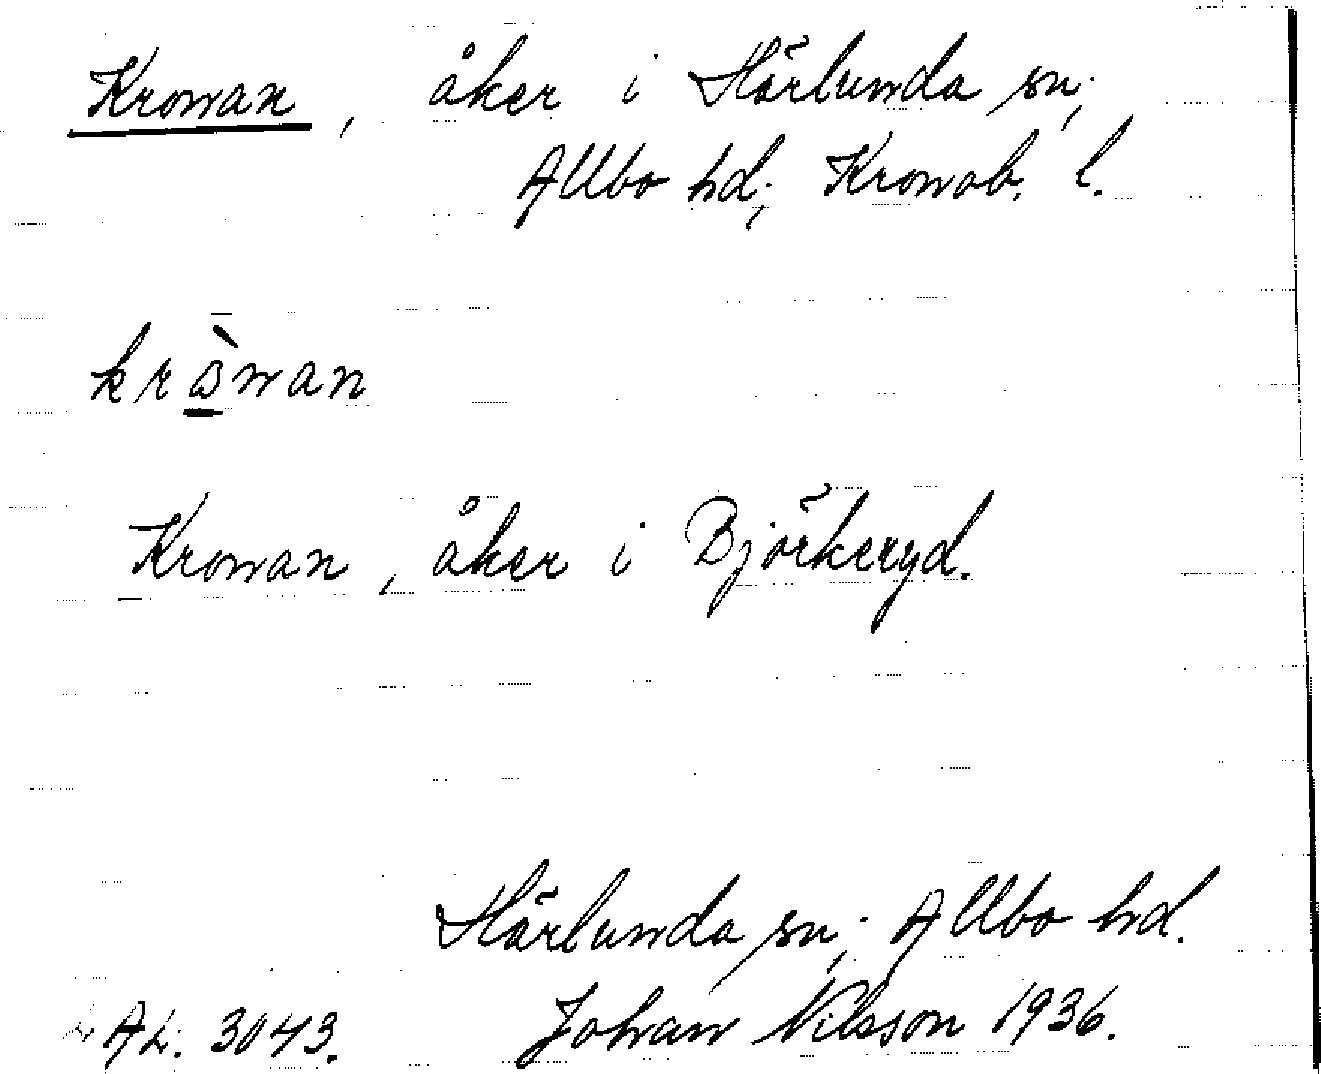 Krowan, åker i Härlunda sn;
Allbo hd; Kronob. l.
kròwan
Krowan, åker i Björkeryd.
Härlunda sn; Allbo hd.
AL. 3043. Johan Nilsson 1936.